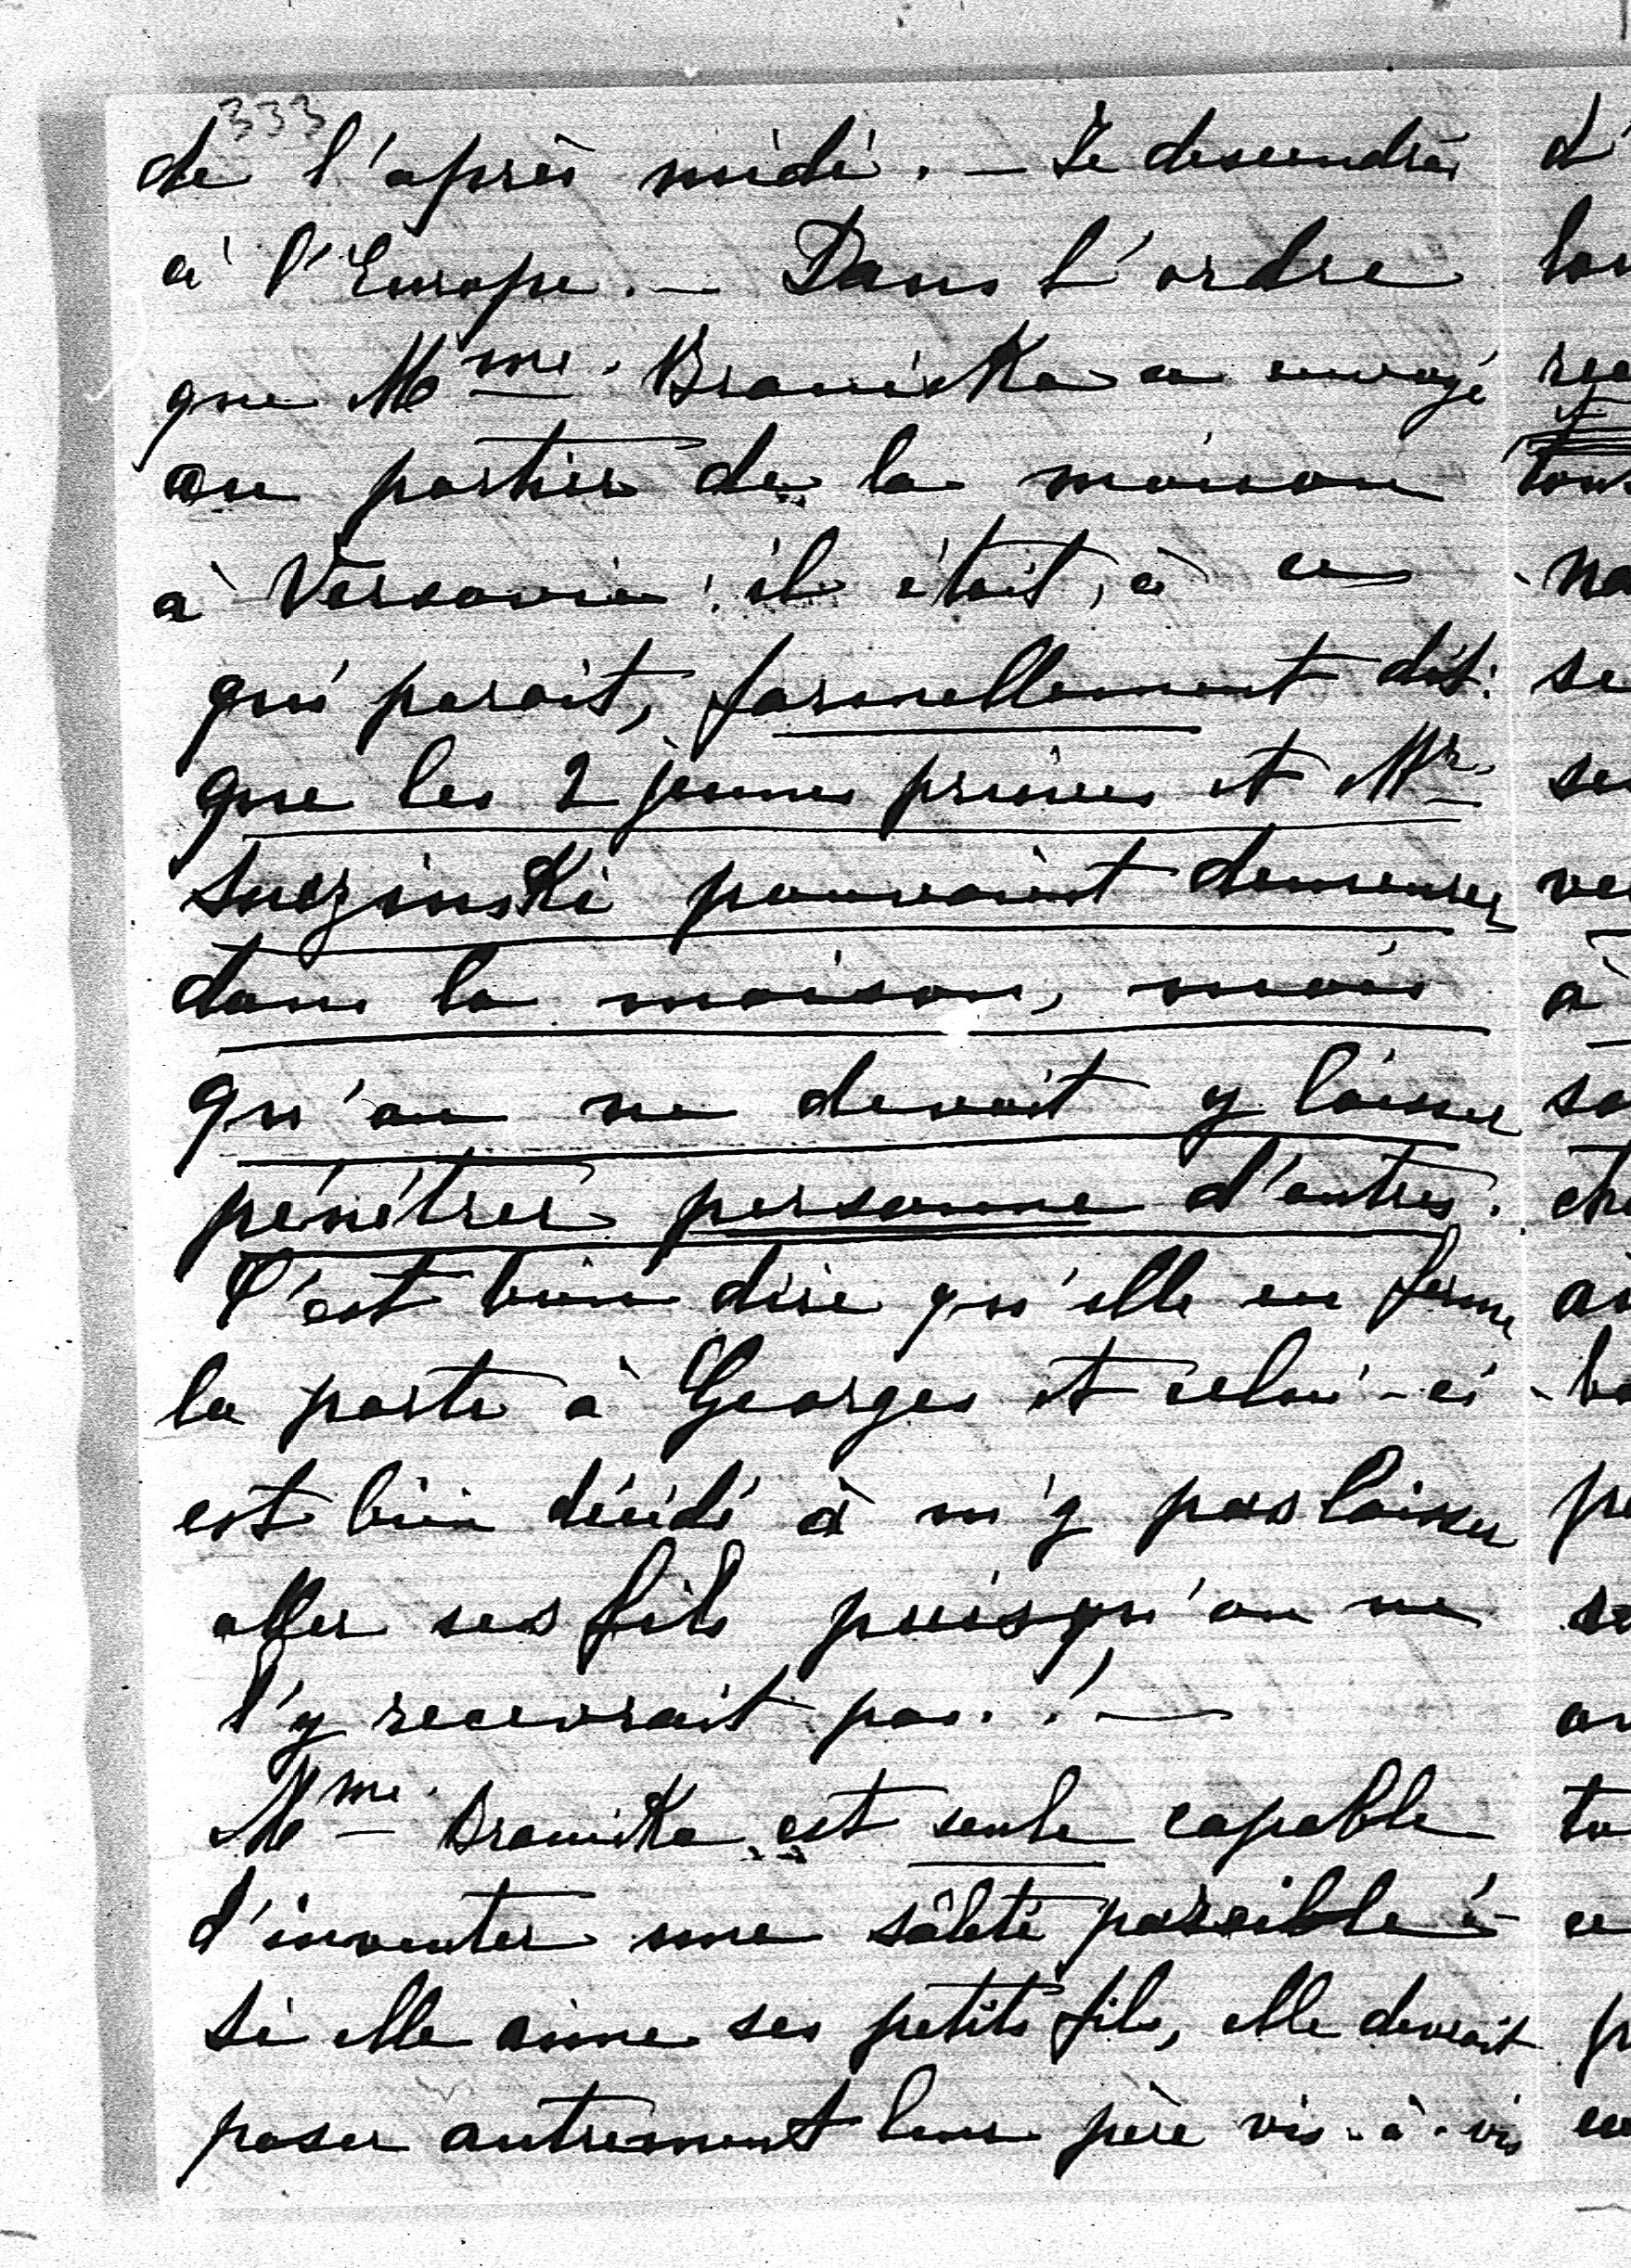 333
de l'après midi. — Je descendrai
à l'Europe. — Dans l'ordre
que Mme. Branicka a envoyé
au portier de la maison
à Varsovie il était, à ce
qui parait, formellement dit:
que les 2 jeunes princes et Mr.
pouvaient demeurer
dans la maison, mais
qu'on ne devait y laisser
pénétrer personne d'autres.
C'est bien dire qu'elle en ferme
la porte à Georges et celui-ci
est bien décidé à n'y pas laisser
aller ses fils puisqu'on ne
l'y recevrait pas! —
Mme. Branicka est seule capable
d'inventer une sâleté pareille
si elle aime ses petits fils, elle devrait
poser autrement leur père vis-à-vis